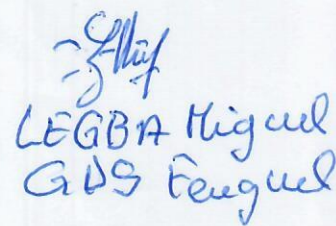 LEGBA Miguel
GDS Fenguel